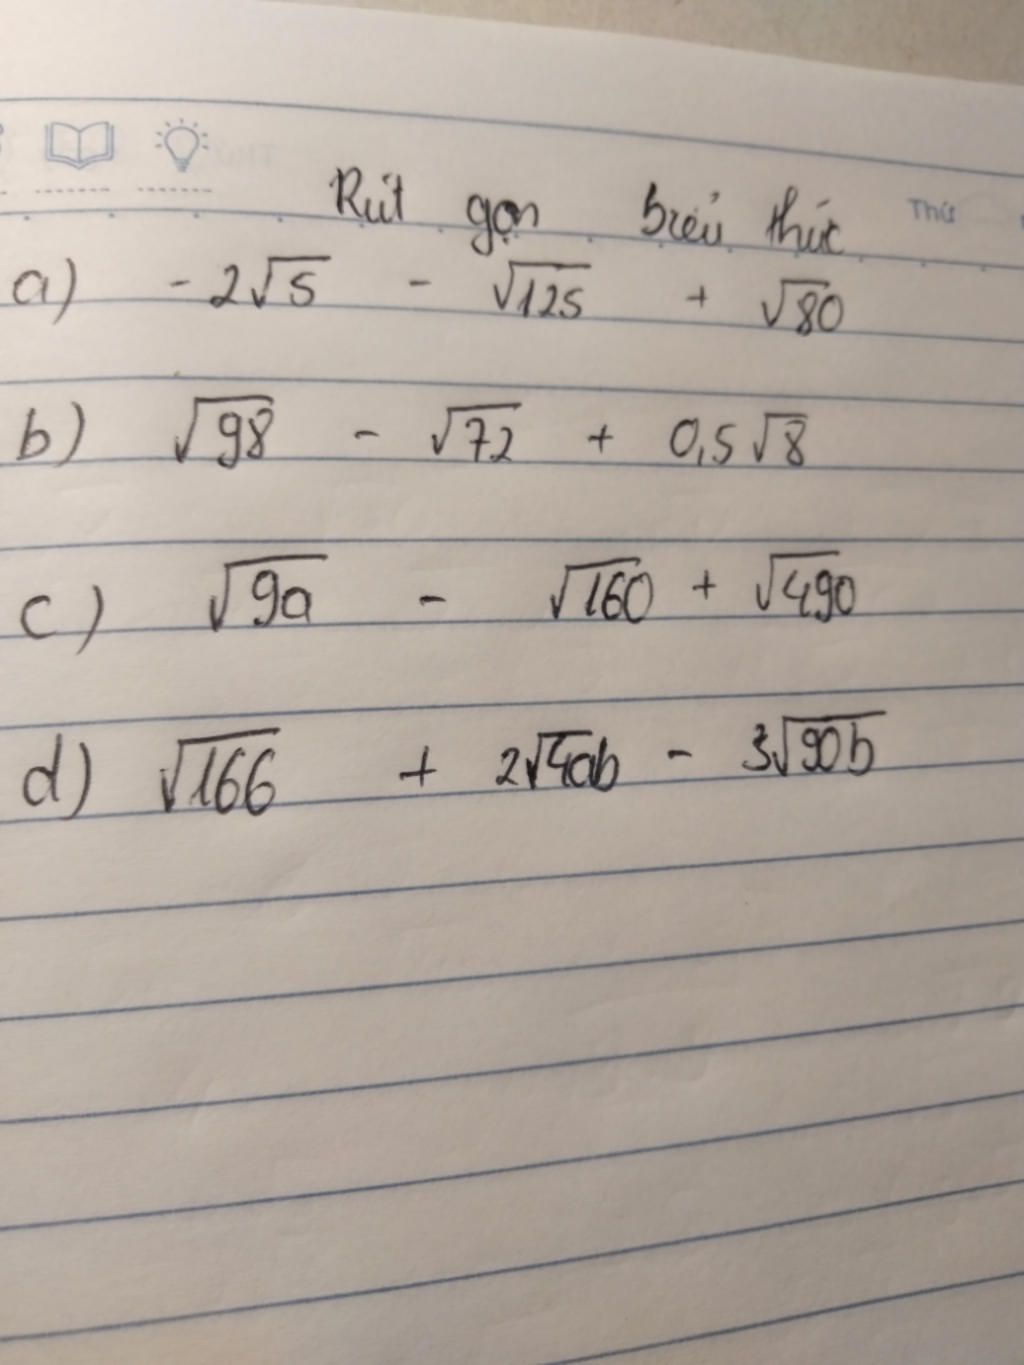 Thứ
Rút gọn biểu thức
a) - 2√5 - √125 + √80
b) √98 - √72 + 0,5√8
c) √9a - √160 + √490
d) √166 + 2√40b - 3√90b